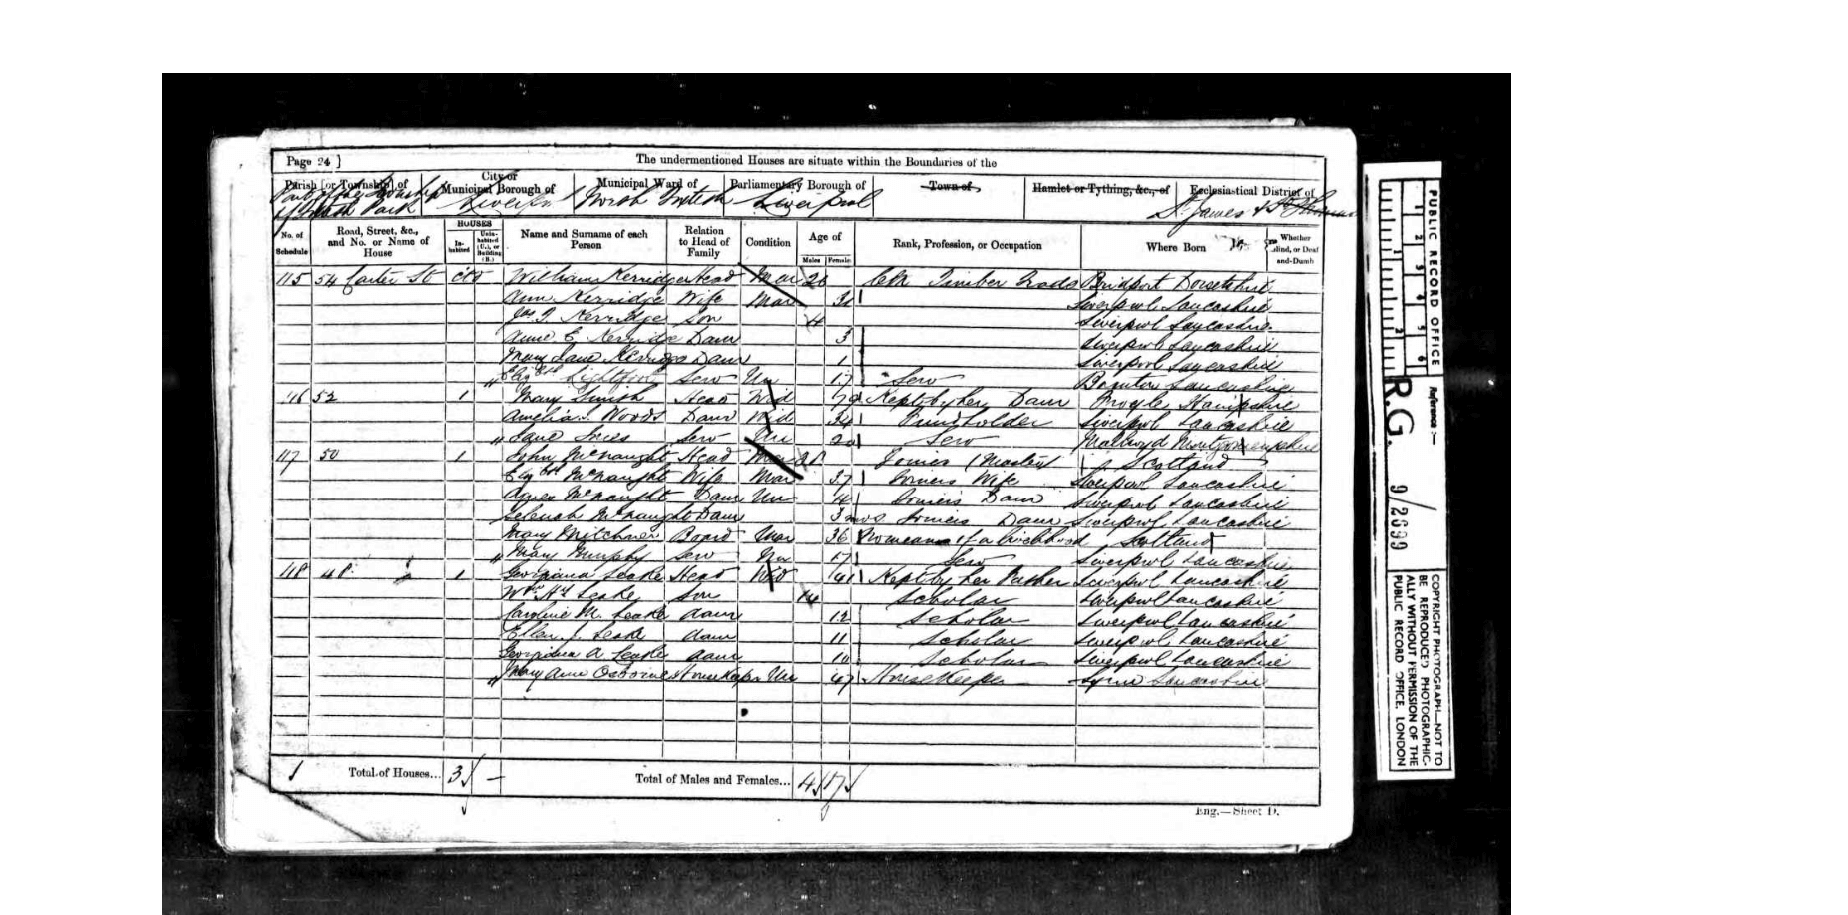 Page 24 ]
The undermentioned Houses are situate within the Boundaries of the
Parish [or Township] of
City of
Municipal Borough of
Municipal Ward of
Parliamentary Borough of
Town of
Hamlet or Tything, &c., of
Ecclesiastical District of
Part of the Township of Toxteth Park
Liverpool
Liverpool
St James
No. of Schedule
Road, Street, &c., and No. or Name of House
HOUSES
Inhabited
Uninhabited (U.), or Building (B.)
Name and Surname of each Person
Relation to Head of Family
Condition
Age of
Males
Females
Rank, Profession, or Occupation
Where Born
Whether Blind, or Deaf-and-Dumb
115 54 Carter St William Kerridge Head Mar 28 Timber Bridport Dorsetshire
Ann Kerridge Wife Mar Liverpool Lancashire
Kerridge Son 4 Liverpool Lancashire
Anne E. Kerridge Daur 3 Liverpool Lancashire
Mary Jane Kerridge Daur 1 Liverpool Lancashire
" Elizbth Lightfoot Serv Un 17 Serv Lancashire
116 52 1 Mary Smith Head Wid Kept by her Daur Hampshire
Amelia Woods Daur Wid 34 Fundholder Liverpool Lancashire
" Jane Serv Un 20 Serv Mallwyd Montgomeryshire
117 50 1 John McNaught Head Mar Joiner (Master) Scotland
Elizbth McNaught Wife Mar 37 Joiners Wife Liverpool Lancashire
Agnes McNaught Daur Un 4 Joiners Daur Liverpool Lancashire
McNaught Daur 3 mos Joiners Daur Liverpool Lancashire
Mary Board Mar 36 No means of a livelihood Scotland
" Mary Murphy Serv Un 17 Serv Liverpool Lancashire
118 48 1 Georgiana Leake Head Wid 41 Kept by her Father Liverpool Lancashire
Wm Hy Leake Son 14 Scholar Liverpool Lancashire
Caroline M. Leake daur 12 Scholar Liverpool Lancashire
Ellen J. Leake daur 11 Scholar Liverpool Lancashire
Georgiana A Leake daur 10 Scholar Liverpool Lancashire
" Mary Anne Osborne HouseKeeper Un 47 HouseKeeper Lancashire
Total of Houses... 3 -
Total of Males and Females... 4 17
Eng.—Sheet D.
PUBLIC RECORD OFFICE
Reference :-
R.G. 9/2699
COPYRIGHT PHOTOGRAPH—NOT TO
BE REPRODUCED PHOTOGRAPHIC-
ALLY WITHOUT PERMISSION OF THE
PUBLIC RECORD OFFICE, LONDON